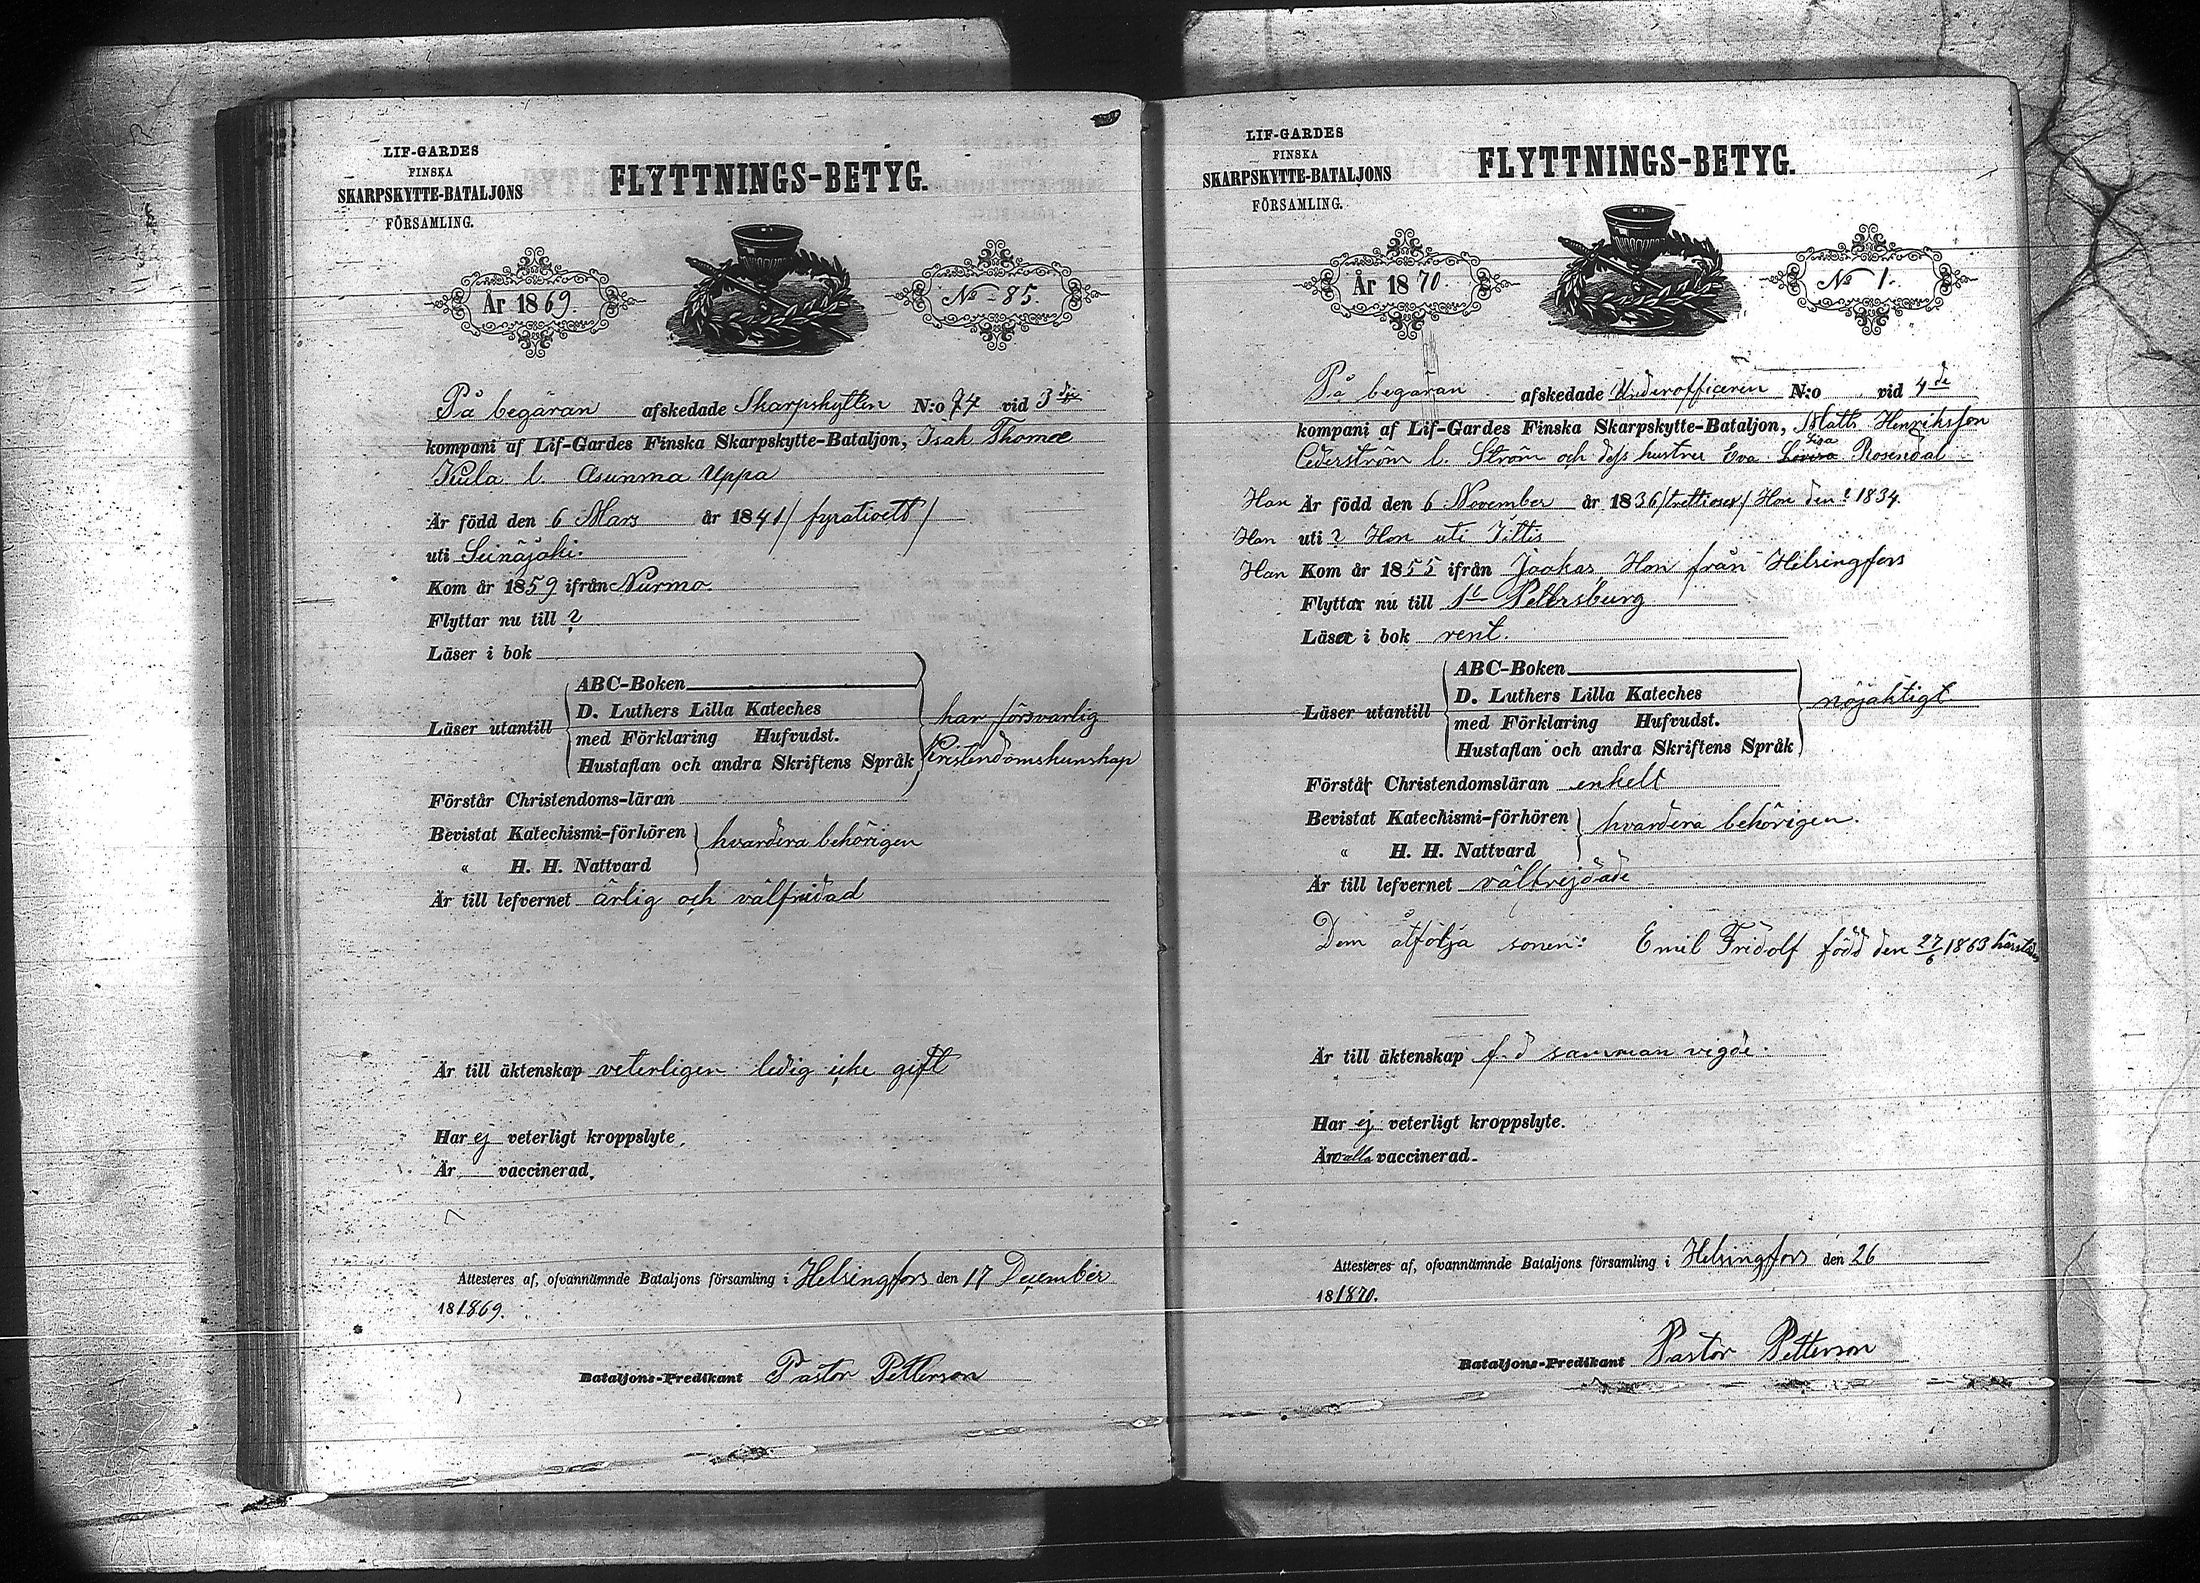 LIF-GARDES
FINSKA
SKARPSKYTTE-BATALJONS
FÖRSAMLING.
FLYTTNINGS-BETYG.
År 1869.
No 85.
På begäran afskedade Skarpskytten N:o 74 vid 3
kompani af Lif-Gardes Finska Skarpskytte-Bataljon, Isak Thomæ
Kula l. Asunma Uppa
Är född den 6 Mars år 1841 / fyrationett /
uti Seinäjoki.
Kom år 1859 ifrån Nurmo.
Flyttar nu till ?
Läser i bok
ABC-Boken
Läser utantill
D. Luthers Lilla Kateches
med Förklaring Hufvudst.
Hustaflan och andra Skriftens Språk
har försvarlig
Kristendomskunskap
Förstår Christendoms-läran
Bevistat Katechismi-förhören
« H. H. Nattvard
hvardera behörigen
Är till lefvernet ärlig och välfridad
Är till äktenskap veterligen ledig icke gift
Har ej veterligt kroppslyte.
Är vaccinerad.
Attesteres af, ofvannämnde Bataljons församling i Helsingfors den 17 December
181869.
Bataljons-Predikant Pastor Petterson
LIF-GARDES
FINSKA
SKARPSKYTTE-BATALJONS
FÖRSAMLING.
FLYTTNINGS-BETYG.
År 1870.
No 1.
På begäran afskedade Underofficeren N:o vid 4de
kompani af Lif-Gardes Finska Skarpskytte-Bataljon, Matts Henriksson
Cederström l. Ström och dess hustru Eva Lisa Rosendal
Han Är född den 6 November år 1836 /trettiosex/ Hon den ? 1834.
Han uti ? Hon uti Tiltis
Han Kom år 1855 ifrån Jaakas Hon från Helsingfors
Flyttar nu till St Petersburg
Läser i bok rent.
ABC-Boken
Läser utantill
D. Luthers Lilla Kateches
med Förklaring Hufvudst.
Hustaflan och andra Skriftens Språk
nöjaktigt
Förstår Christendomsläran enkelt
Bevistat Katechismi-förhören
« H. H. Nattvard
hvardera behörigen.
Är till lefvernet välfrejdade
Dem åtfölja sonen: Emil Fridolf född den 27/6 1863 härstädes
Är till äktenskap f. d samman vigde.
Har ej veterligt kroppslyte.
Är alla vaccinerad.
Attesteres af, ofvannämnde Bataljons församling i Helsingfors den 26
181870.
Bataljons-Predikant Pastor Petterson